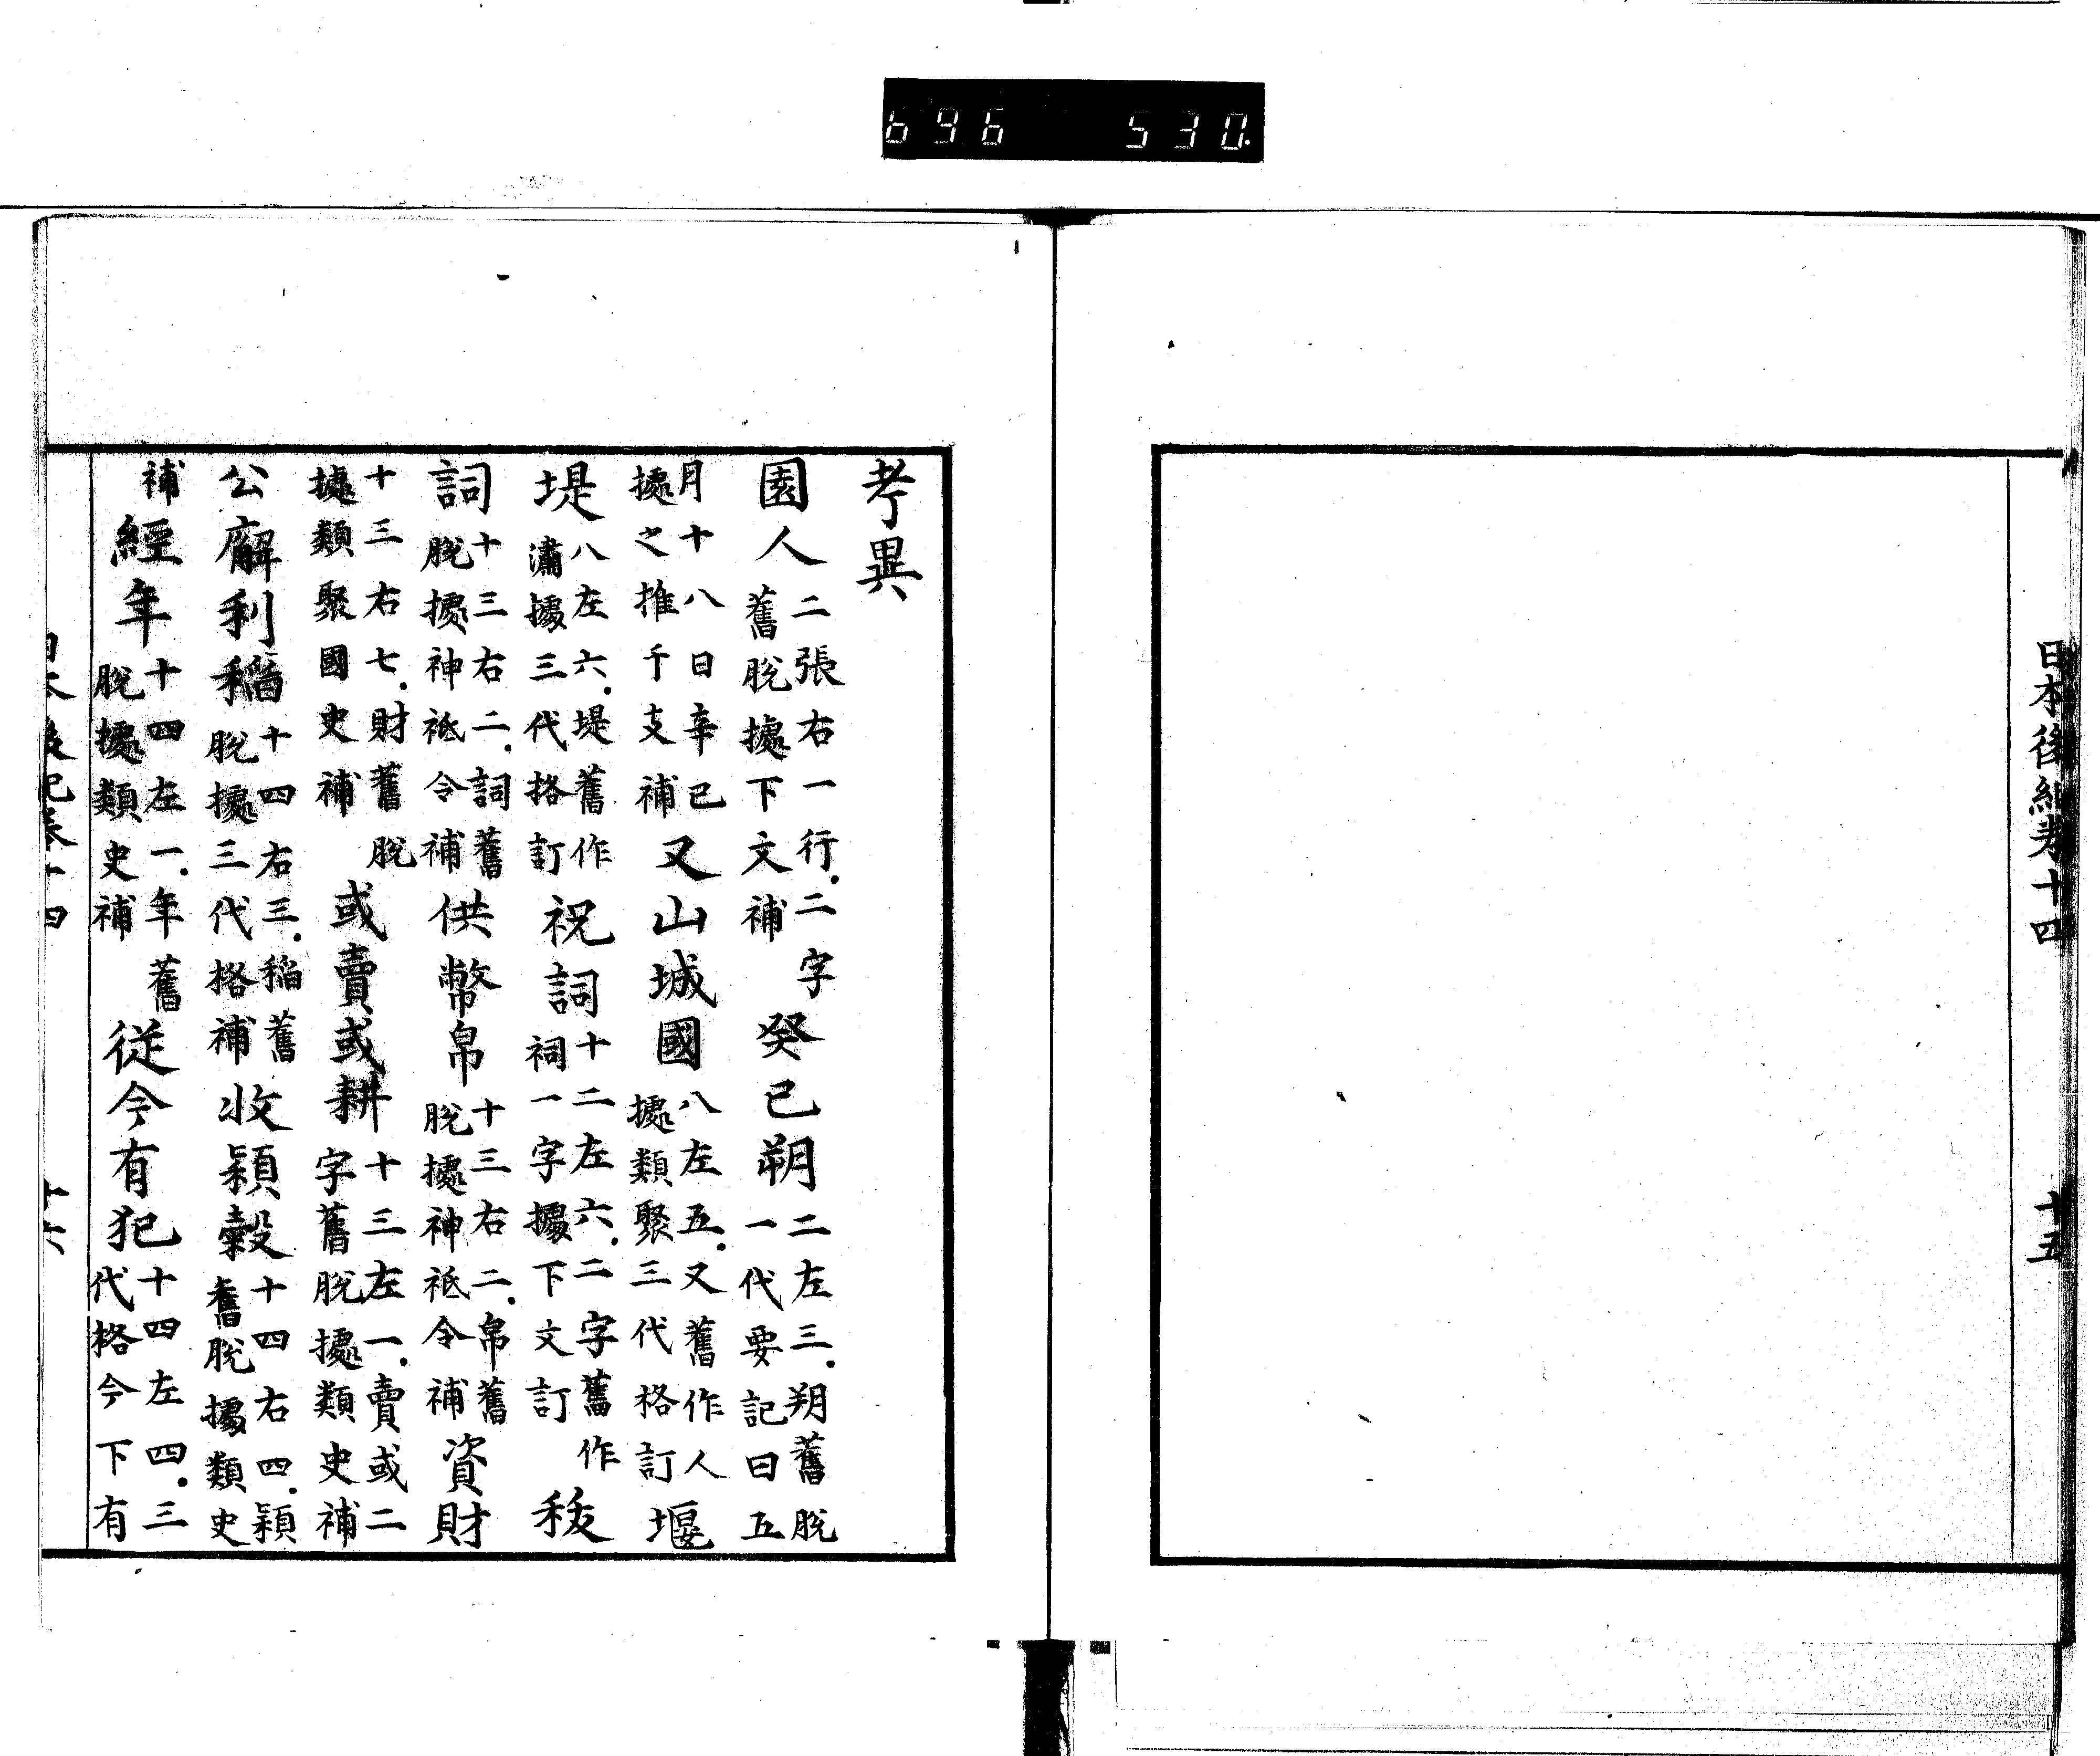 696 530.
日本後紀卷十四 十五
考異
園人 二張右一行.二字
舊脫據下文補 癸巳朔 二左三.朔舊脫
一代要記曰五
月十八日辛巳
據之推干支補 又山城國 八左五.又舊作人
據類聚三代格訂 堰
堤 八左六.堤舊作
潚據三代格訂 祝詞 十二左六.二字舊作
祠一字據下文訂 祓
詞 十三右二.詞舊
脫據神祇令補 供幣帛 十三右二.帛舊
脫據神祇令補 資財
十三右七.財舊脫
據類聚國史補 或賣或耕 十三左一.賣或二
字舊脫據類史補
公廨利稲 十四右三.稲舊
脫據三代格補 收穎穀 十四右四.穎
舊脫據類史
補 經年 十四左一.年舊
脫據類史補 従今有犯 十四左四.三
代格今下有